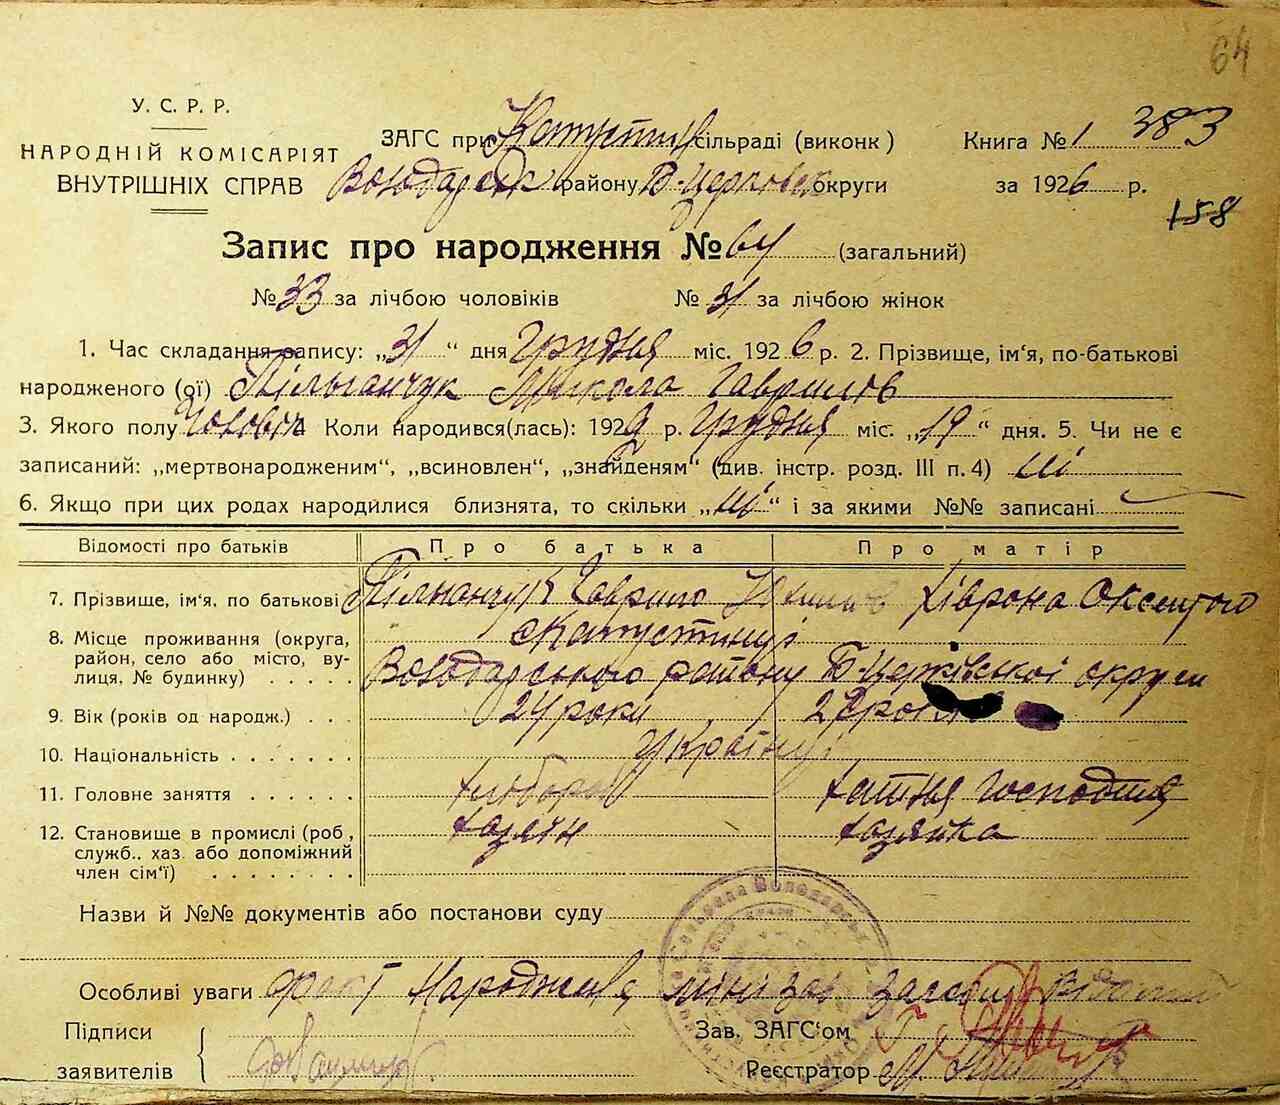 64
У. С. Р. Р.
НАРОДНІЙ КОМІСАРІЯТ
ВНУТРІШНІХ СПРАВ
ЗАГС при Капустин сільраді (виконк)
Володарськ району Б-Церковск округи
Книга № 1 383
за 1926 р.
158
Запис про народження № 64 (загальний)
№ 33 за лічбою чоловіків № 31 за лічбою жінок
1. Час складання запису: „31“ дня Грудня міс. 1926 р. 2. Прізвище, ім'я, по-батькові
народженого (ої) Микола Гаврилов
3. Якого полу Чоловіч Коли народився(лась): 192 р. Грудня міс. „19“ дня. 5. Чи не є
записаний: „мертвонародженим“, „всиновлен“, „знайденям“ (див. інстр. розд. III п. 4) ні
6. Якщо при цих родах народилися близнята, то скільки „ні“ і за якими №№ записані
Відомості про батьків Про батька Про матір
7. Прізвище, ім'я, по батькові Гаврило Хіврона
8. Місце проживання (округа,
район, село або місто, ву-
лиця, № будинку)
Володарського району Б-Церківської округи
9. Вік (років од народж.) 24 роки
10. Національність Українці
11. Головне заняття хлібороб хатня господиня
12. Становище в промислі (роб,
служб., хаз. або допоміжний
член сім'ї)
хазяїн хазяйка
Назви й №№ документів або постанови суду
Особливі уваги факт народження
Підписи
заявителів
Зав. ЗАГС'ом
Реєстратор